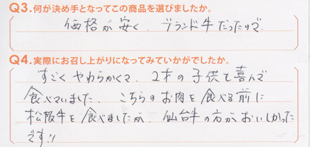 Q3.何が決め手となってこの商品を選びましたか。
価格が安く、ブランド牛だったので
Q4.実際にお召し上がりになってみていかがでしたか。
すごくやわらかくて、2才の子供も喜んで
食べていました。こちらのお肉を食べる前に
松阪牛を食べましたが、仙台牛の方がおいしかった
です!!